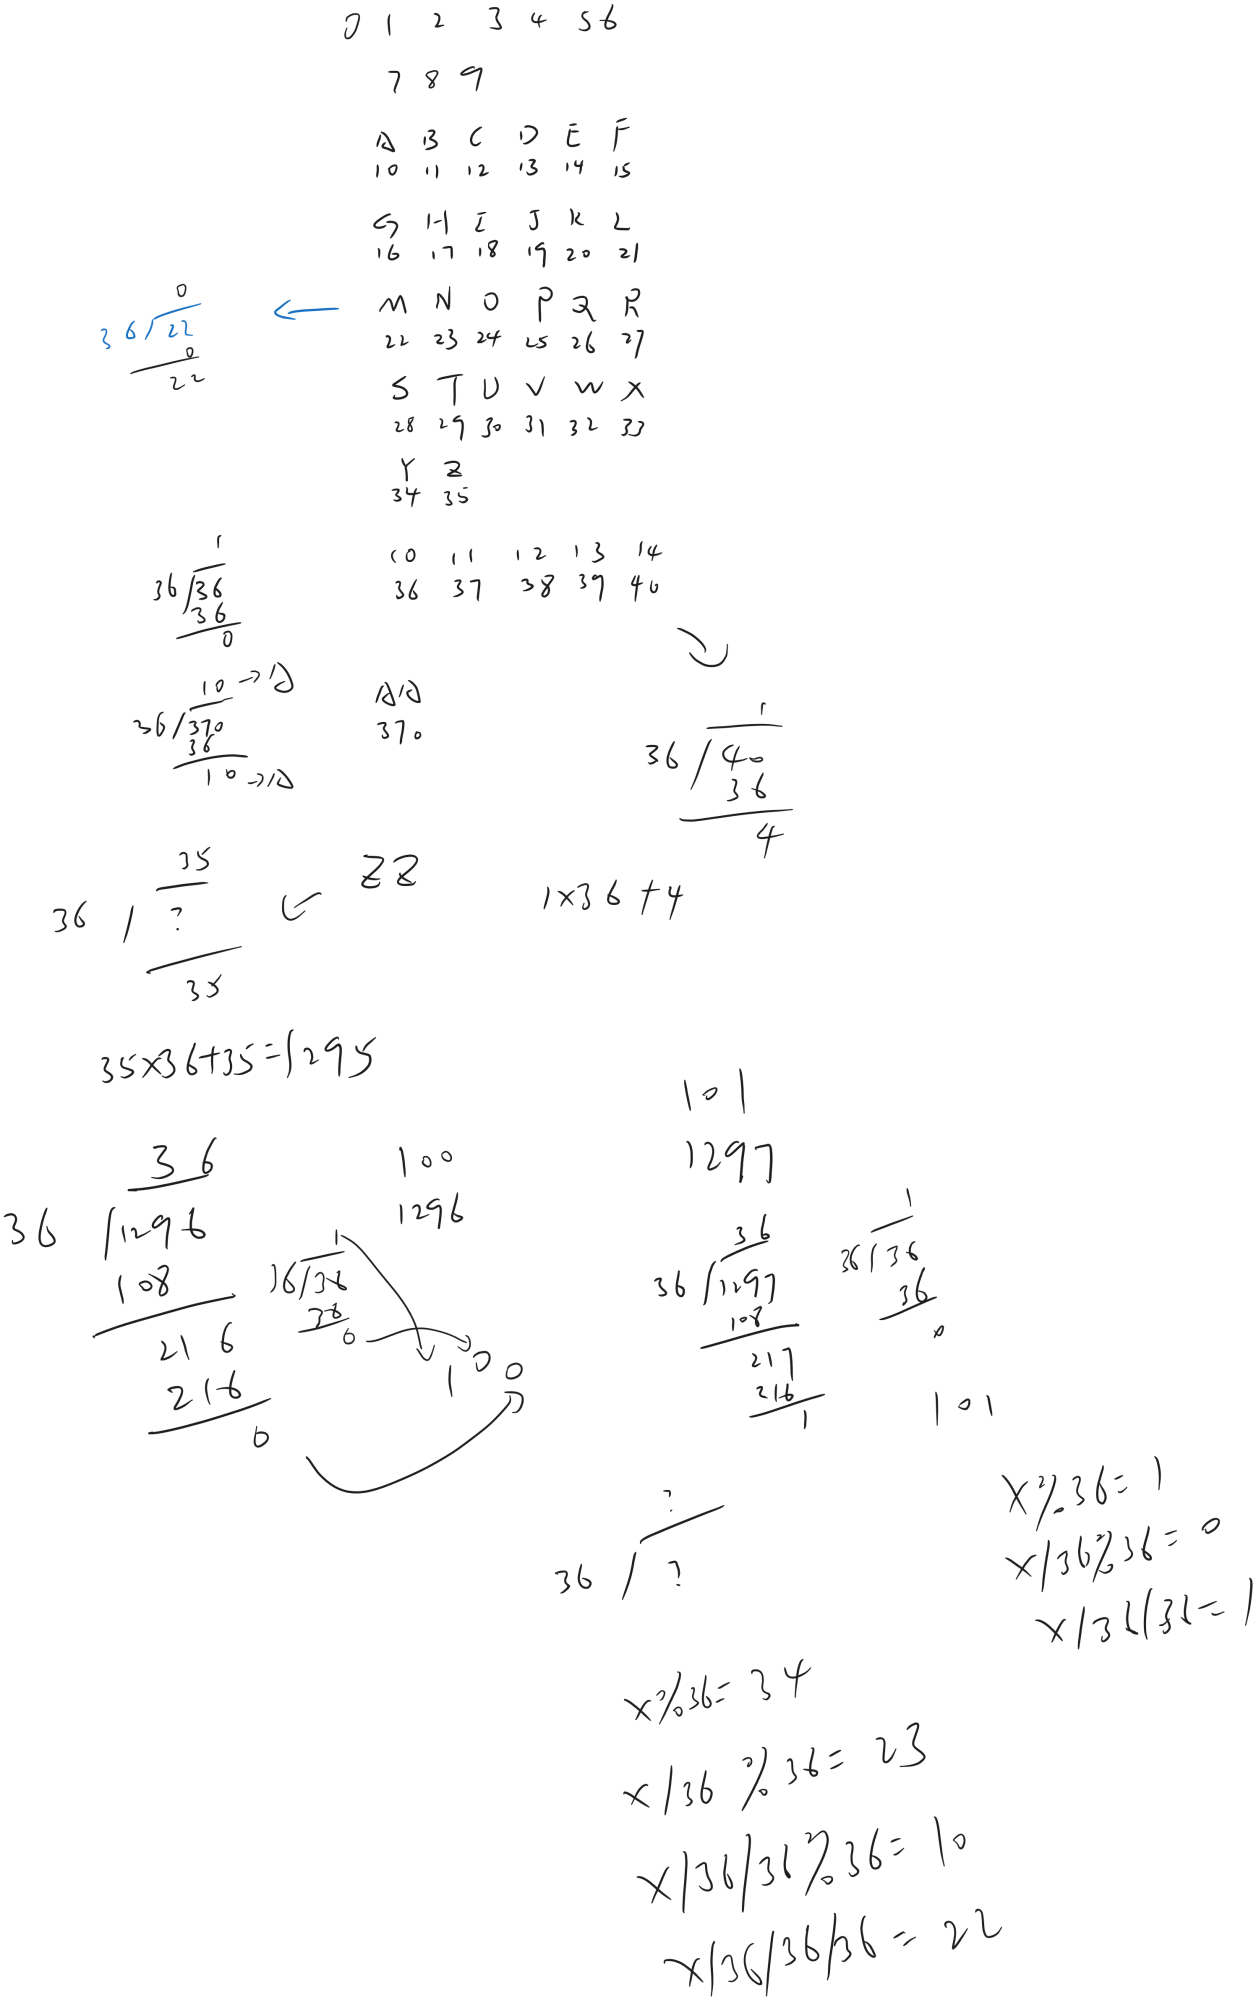 0 1 2 3 4 5 6
7 8 9
A B C D E F
10 11 12 13 14 15
G H I J K L
16 17 18 19 20 21
M N O P Q R
22 23 24 25 26 27
0
36/22
0
22
S T U V W X
28 29 30 31 32 33
Y Z
34 35
10 11 12 13 14
36 37 38 39 40
1
36/36
36
0
10→A
36/370
36
10→A
AA
370
1
36/40
36
4
1x36+4
ZZ
35
36/?
35
35x36+35=1295
36
36/1296
108
216
216
0
100
1296
1
36/36
36
0
100
101
1297
36
36/1297
108
217
216
1
1
36/36
36
0
101
?
36/?
x%36=1
x/36%36=0
x/36/36=1
x%36=34
x/36%36=23
x/36/36%36=10
x/36/36/36=22